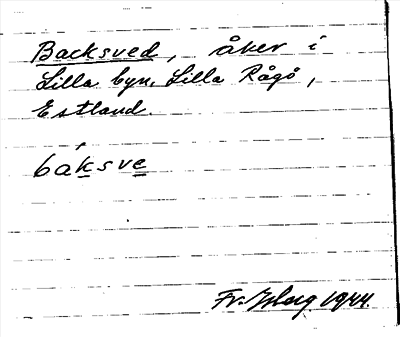 Backsved, åker i
Lilla byn, Lilla Rågö,
Estland.
báksve
Fr. 1944.